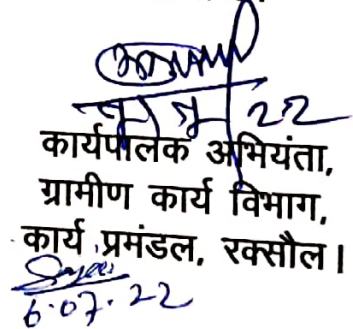 22
कार्यपालक अभियंता,
ग्रामीण कार्य विभाग,
कार्य प्रमंडल, रक्सौल।
6.07.22